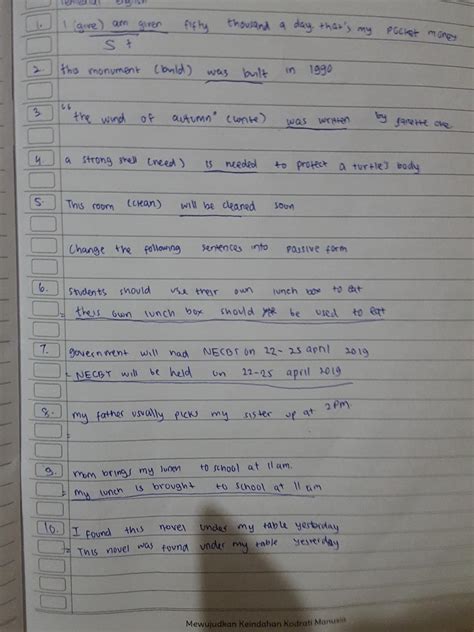 remedial english
1. I (give) am given fifty thousand a day, that's my pocket money
S t
2. this monument (build) was built in 1990
3 "the wind of autumn" (write) was written by
4. a strong shell (need) is needed to protect a turtle's body
5. This room (clean) will be cleaned soon
Change the following sentences into passive form
6. Students should use their own lunch box to eat
= their own lunch box should be used to eat
7. government will had NECBT on 22-25 april 2019
= NECBT will be held on 22-25 april 2019
8. my father usually picks my sister up at 2pm
=
9. mom brings my lunch to school at 11 am.
= my lunch is brought to school at 11 am
10. I found this novel under my table yesterday
= This novel was found under my table yesterday
Mewujudkan Keindahan Kodrati Manusia